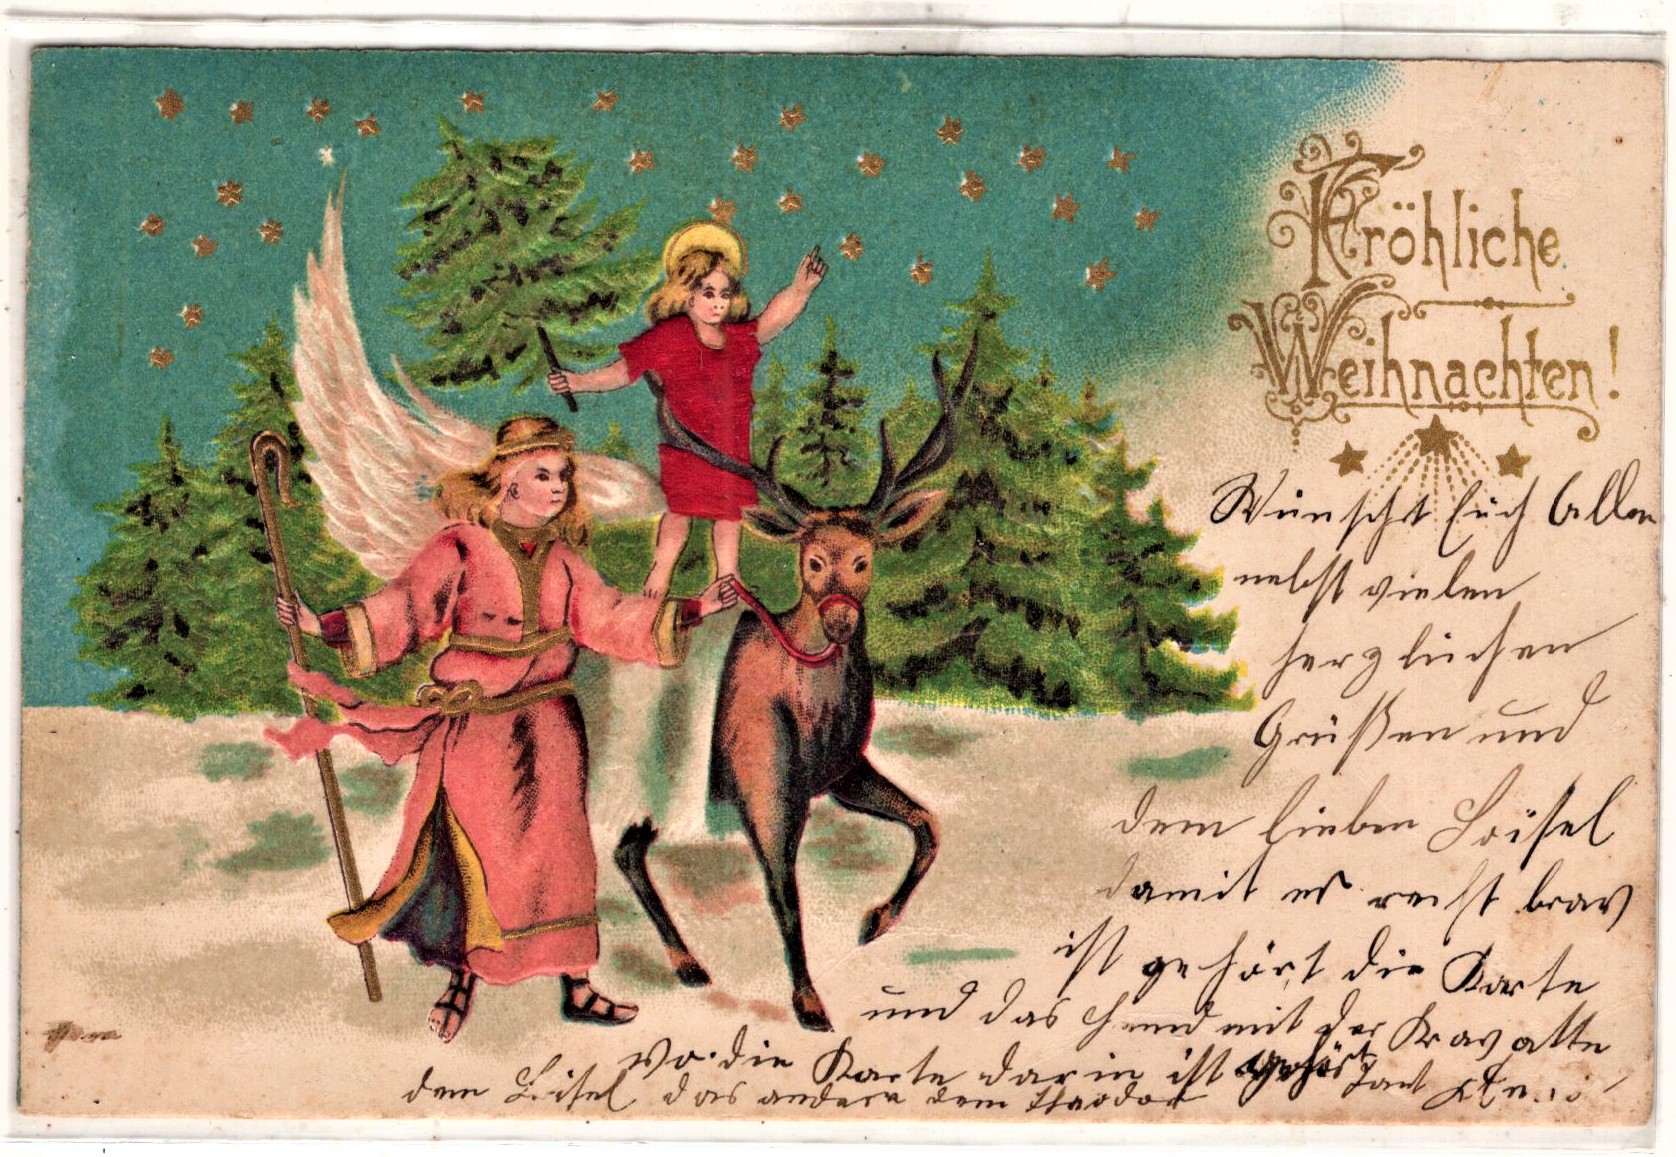 Fröhliche
Weihnachten!
Wünscht Euch Allen
nebst vielen
herzlichen
Grüßen und
dem lieben Loisel
damit er recht brav
ist gehört die Karte
und das Hemd mit der Kravatte
wo die Karte darin ist gehört
dem Loisel das andere dem Theodor
Tant